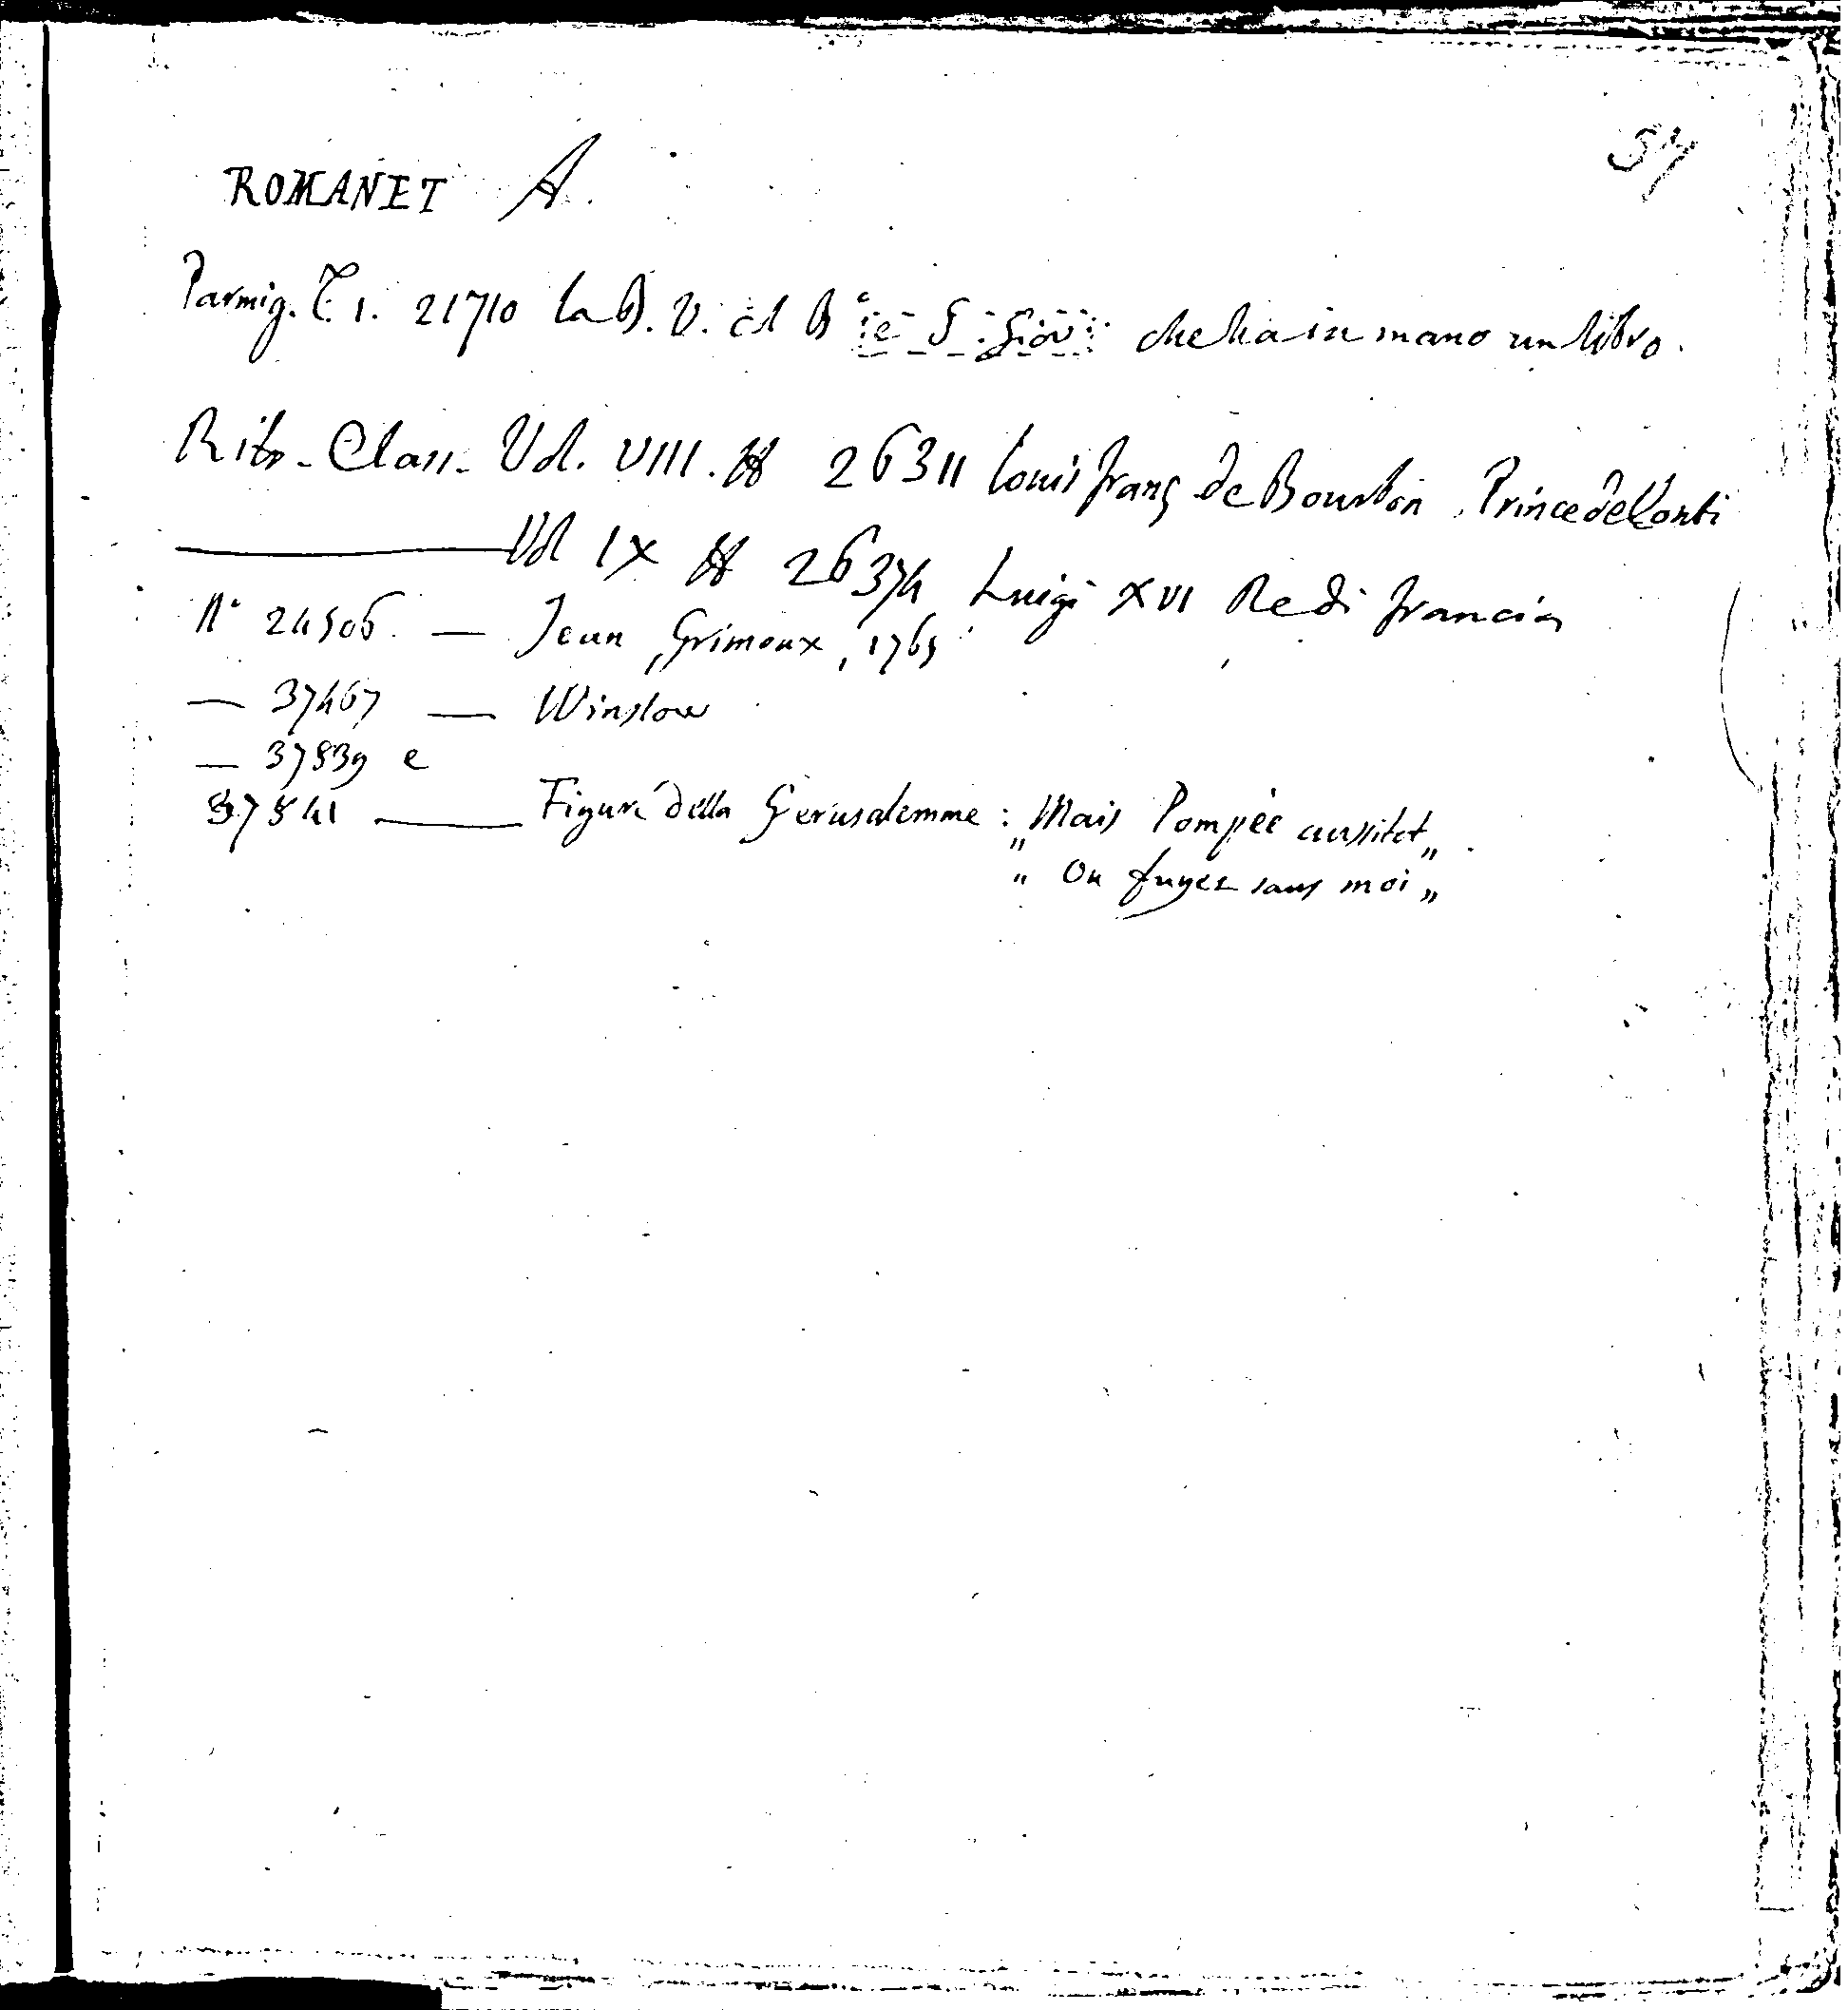 57
ROMANET A.
Parmig. T. 1. 21710 la B. V. col B e S. Giov che ha in mano un libro.
Ritr. Class. Vol. VIII. 26311 Louis franç de Bourbon, Prince de Conti
Vol IX 26374 Luigi XVI Re di francia
N° 24506. — Jean Grimoux, 1765
— 37467 — Winslow
— 37839 e
37841 — Figure della Gerusalemme: "Mais Pompée aussitot"
" Ou fuyez sans moi "